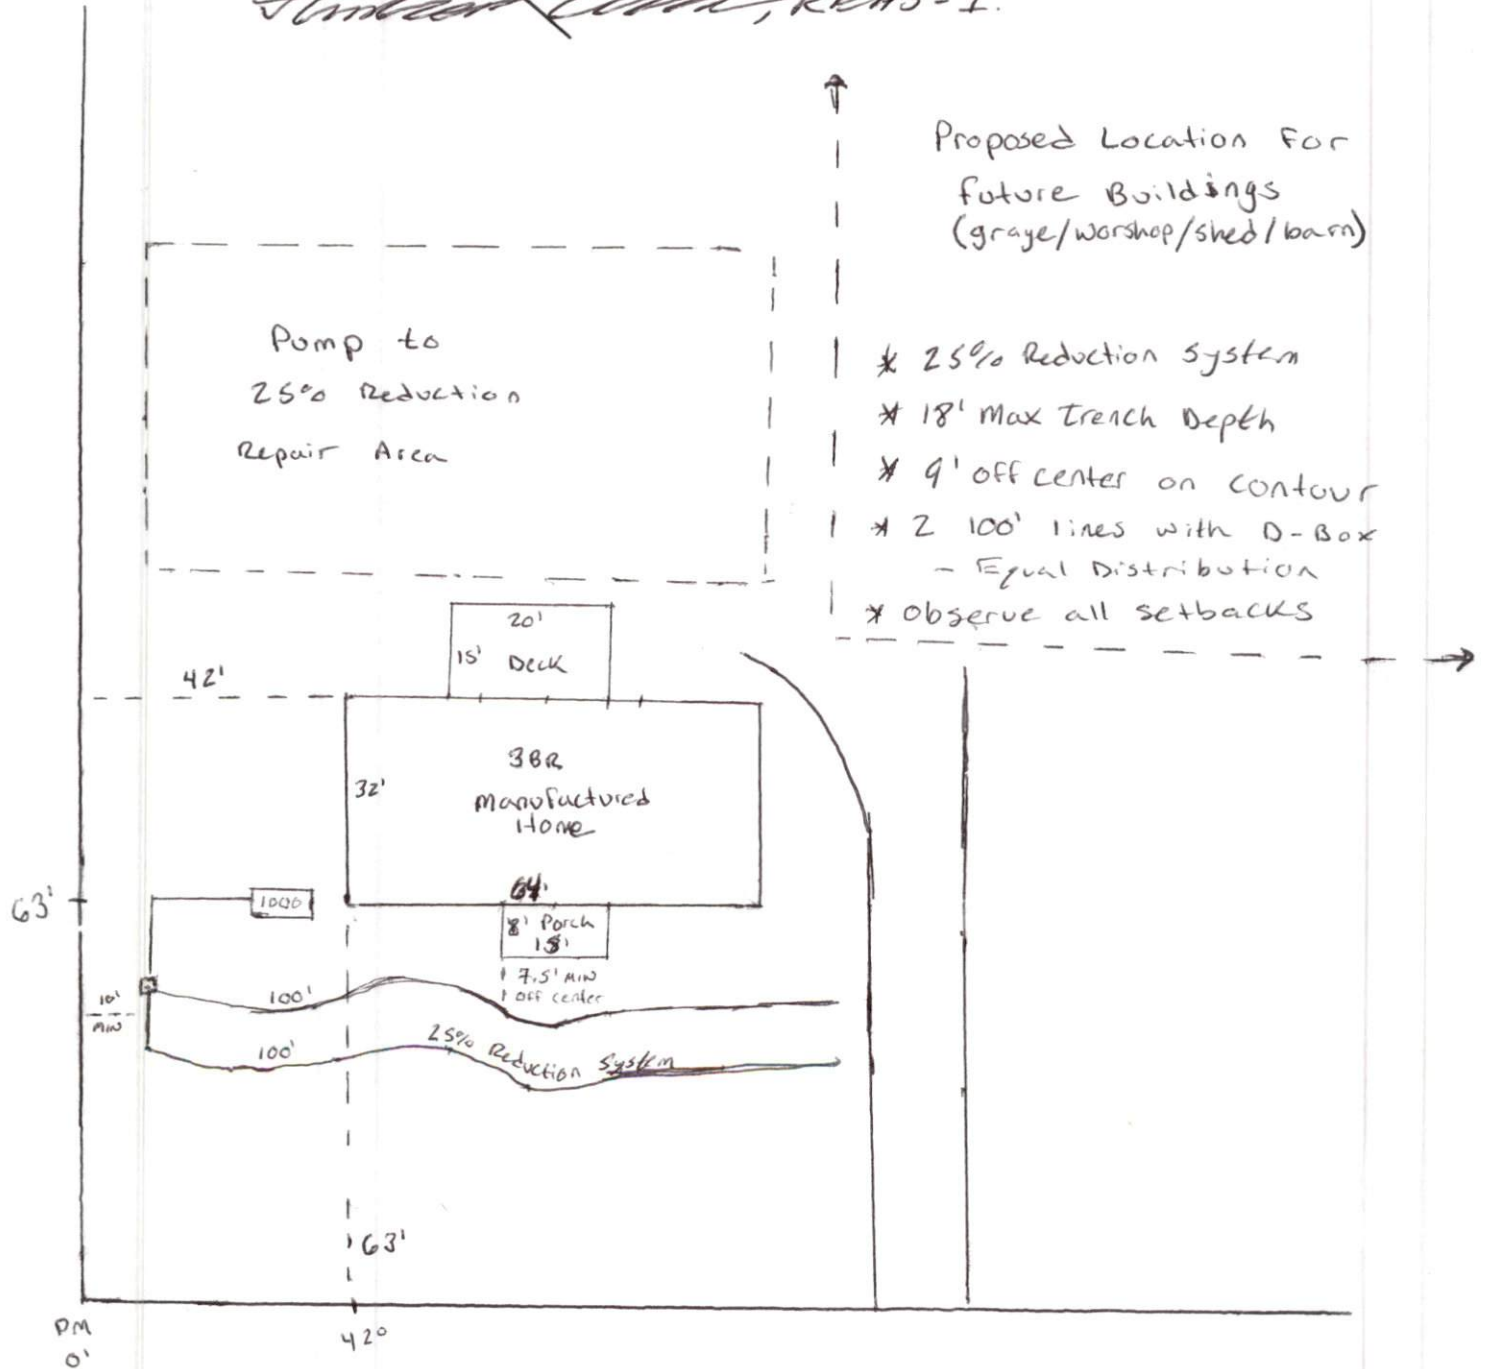 Proposed Location For
future Buildings
(graye/worshop/shed/barn)
Pump to
25% Reduction
Repair Area
* 25% Reduction System
* 18' Max Trench Depth
* 9' off center on contour
* 2 100' lines with D-Box
- Equal Distribution
* Observe all setbacks
20'
15' Deck
42'
3BR
32'
Manufactured
Home
64'
63'
1000
8' Porch
18'
7.5' MIN
off center
10'
MIN
100'
100'
25% Reduction System
63'
PM
0'
420